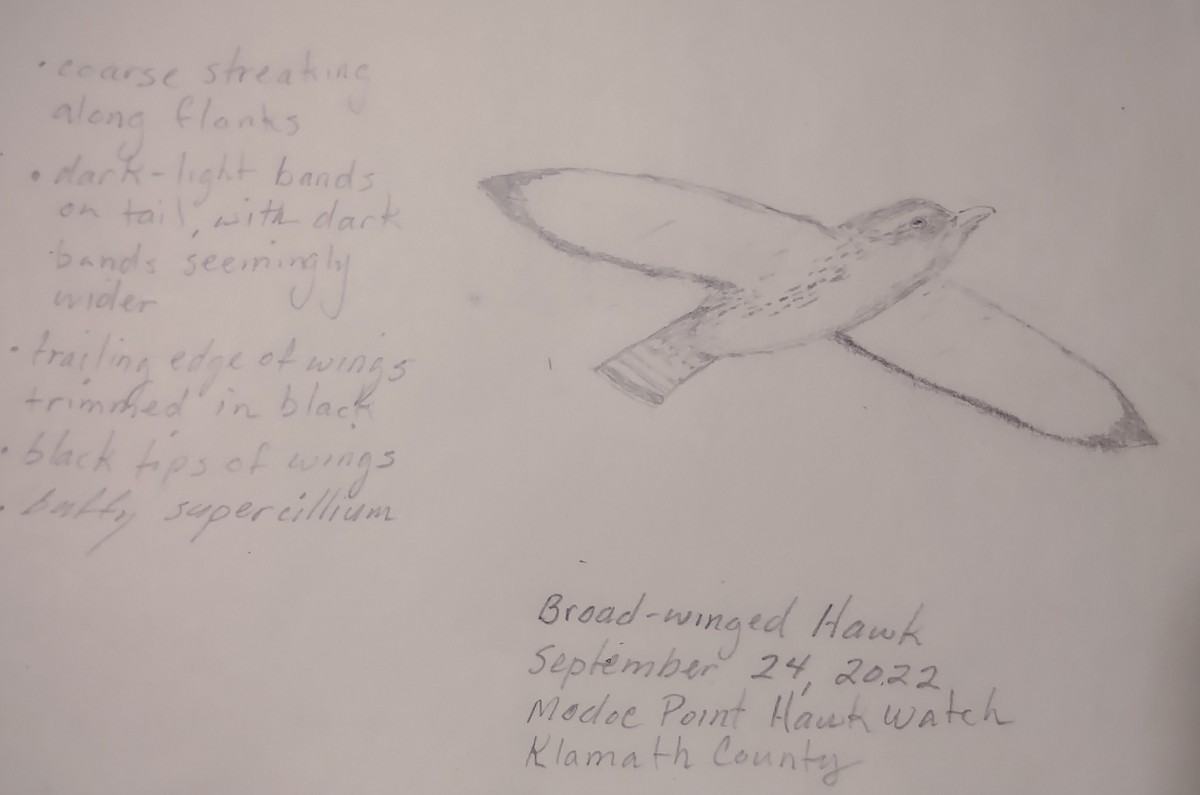 • coarse streaking
along flanks
• dark-light bands
on tail, with dark
bands seemingly
wider
• trailing edge of wings
trimmed in black
• black tips of wings
• buffy supercillium
Broad-winged Hawk
September 24, 2022
Modoc Point Hawk Watch
Klamath County